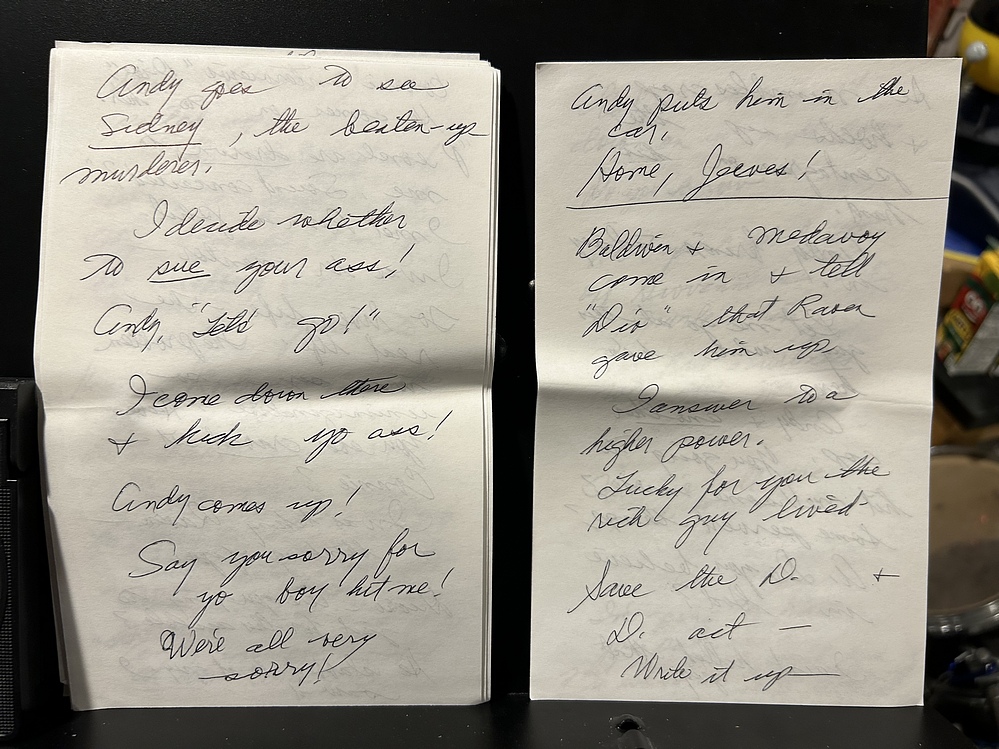 Andy goes to see
Sidney, the beaten-up
murderer.
I decide whether
to sue your ass!
Andy, "Let's go!"
I come down there
+ kick yo ass!
Andy comes up!
Say you sorry for
yo boy hit me!
We're all very
sorry!
Andy puts him in the
car.
Home, Jeeves!
Baldwin + Medavoy
come in + tell
"Div" that Raver
gave him up.
I answer to a
higher power.
Lucky for you the
rich guy lived-
Save the D. +
D. act —
Write it up